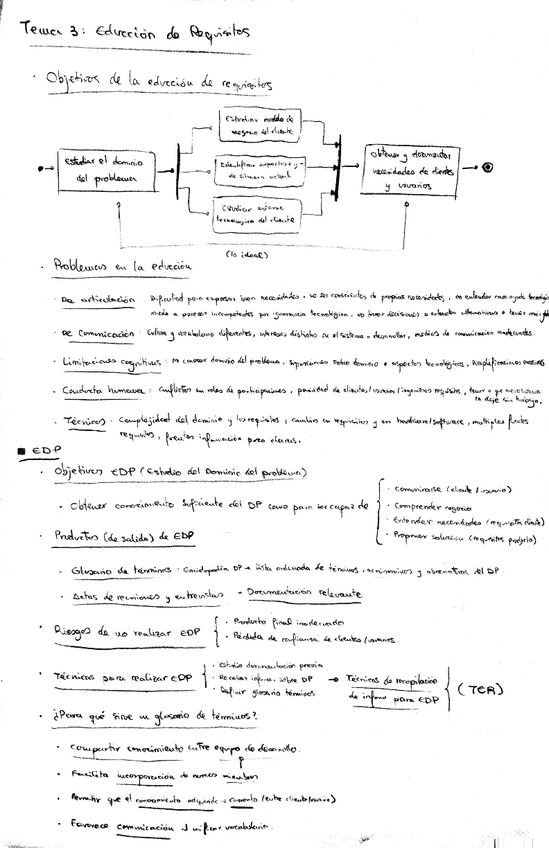 Tema 3: Educción de Requisitos
· Objetivos de la educción de requisitos
Estudiar modelo de
negocio del cliente
Estudiar el dominio
del problema
Identificar
Obtener y documentar
necesidades de clientes
y usuarios
Estudiar entorno
tecnológico del cliente
(lo ideal)
· Problemas en la educción
· De articulación Dificultad para expresar bien necesidades. no ser conscientes de propias necesidades, no entender
miedo a parecer incompetentes por ignorancia tecnológica. no tomar decisiones o
· De Comunicación: Cultura y vocabulario diferentes, intereses distintos en el sistema a desarrollar, medios de comunicación inadecuados.
· Limitaciones cognitivas: no conocer dominio del problema, suposiciones sobre dominio o aspectos tecnológicos, simplificaciones
· Conducta humana: Conflictos en roles de participaciones, pasividad de clientes/usuarios/ingenieros requisitos, temor a que
le deje sin trabajo.
· Técnicos: Complejidad del dominio y los requisitos, cambios en requisitos y en hardware/software, múltiples fuentes
requisitos, fuentes información poco claras.
■ EDP
· Objetivos EDP (Estudio del Dominio del problema)
· Obtener conocimiento suficiente del DP como para ser capaz de
· Comunicarse (cliente/usuario)
· Comprender negocio
· Entender necesidades (requisitos cliente)
· Proponer solución (requisitos producto)
· Productos (de salida) de EDP
· Glosario de términos: Enciclopedia DP → lista ordenada de términos, acrónimos y abreviaturas del DP
· Actas de reuniones y entrevistas - Documentación relevante
· Riesgos de no realizar EDP
· Producto final inadecuado
· Pérdida de confianza de clientes/usuarios
· Técnicas para realizar EDP
· Estudio documentación previa
· Recabar inform. sobre DP
· Definir glosario términos
→ Técnicas de recopilación
de inform para EDP
(TER)
· ¿Para qué sirve un glosario de términos?
· Compartir conocimiento entre equipo de desarrollo.
· Facilita incorporación de nuevos miembros
· Permitir que el conocimiento adquirido correcto (entre cliente/usuario)
· Favorece comunicación al unificar vocabulario.